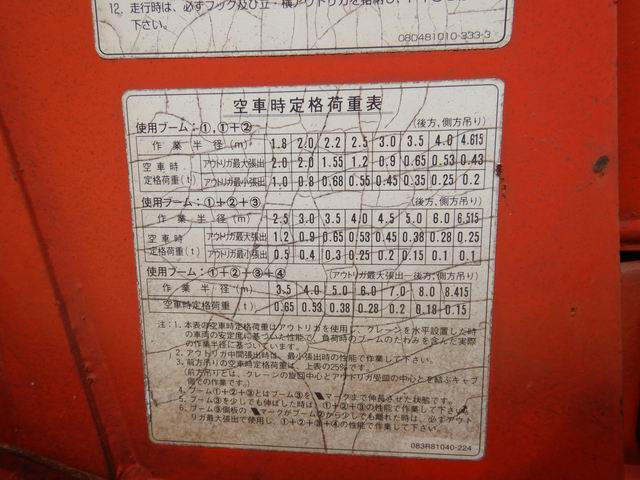 12. 走行時は、必ずフック及び立・横アウトリガを格納し、
下さい。
08D481010-333-3
空車時定格荷重表
使用ブーム:①,①+② (後方,側方吊り)
作業半径(m) 1.8 2.0 2.2 2.5 3.0 3.5 4.0 4.615
空車時 アウトリガ最大張出 2.0 2.0 1.55 1.2 0.9 0.65 0.53 0.43
定格荷重(t) アウトリガ最小張出 1.0 0.8 0.68 0.55 0.45 0.35 0.25 0.2
使用ブーム:①+②+③ (後方,側方吊り)
作業半径(m) 2.5 3.0 3.5 4.0 4.5 5.0 6.0 6.515
空車時 アウトリガ最大張出 1.2 0.9 0.65 0.53 0.45 0.38 0.28 0.25
定格荷重(t) アウトリガ最小張出 0.5 0.4 0.3 0.25 0.2 0.15 0.1 0.1
使用ブーム:①+②+③+④ (アウトリガ最大張出-後方,側方吊り)
作業半径(m) 3.5 4.0 5.0 6.0 7.0 8.0 8.415
空車時定格荷重(t) 0.65 0.53 0.38 0.28 0.2 0.18 0.15
注:1. 本表の空車時定格荷重はアウトリガを使用し、クレーンを水平設置した時
の車両の安定度に基づいた性能で、負荷時のブームのたわみを含んだ実際
の作業半径に基づいています。
2. アウトリガ中間張出時は、最小張出時の性能で作業して下さい。
3. 前方吊りの空車時定格荷重は、上表の25%です。
(前方吊りとは、クレーンの旋回中心とアウトリガ受皿の中心とを結ぶキャブ
側での作業です。)
4. ブーム①+②+③とはブーム③を◥マークまで伸長させた状態です。
5. ブーム③を少しでも伸ばした時は、①+②+③の性能で作業して下さい。
6. ブーム③側板の◥マークがブーム②から少しでも離れた時は、必ずアウト
リガ最大張出で使用し、①+②+③+④の性能で作業して下さい。
083R81040-224